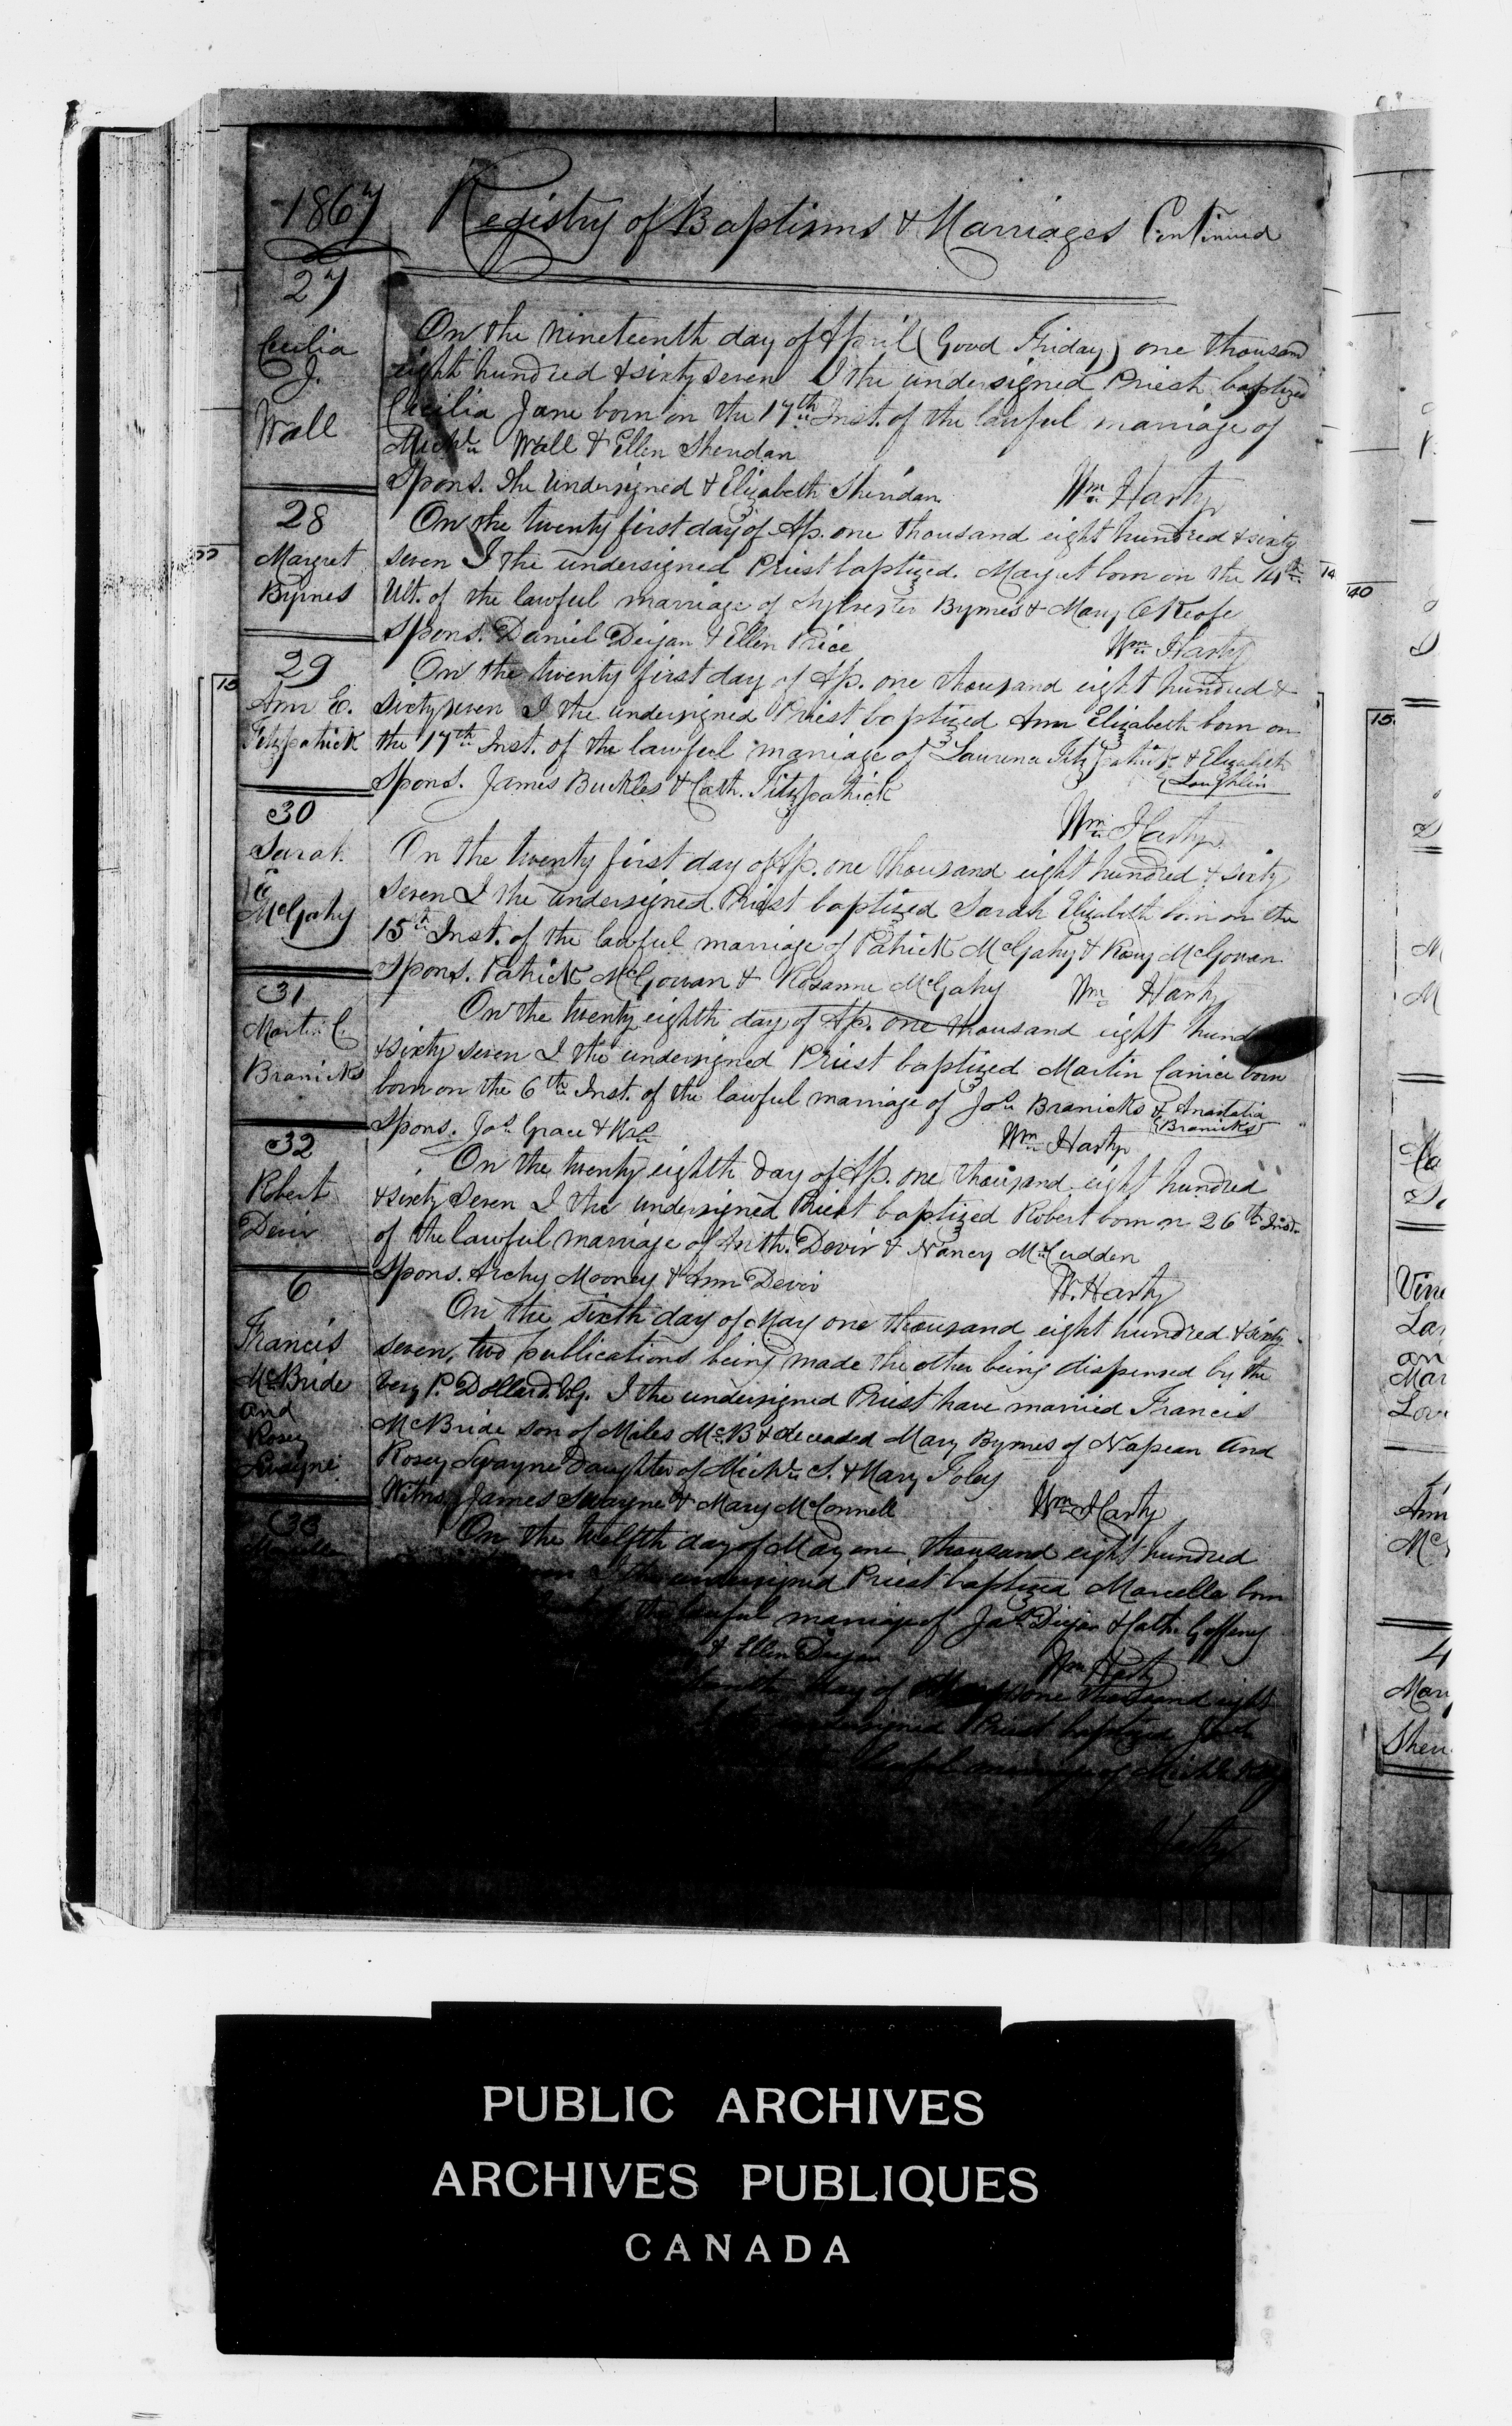 1867 Registry of Baptisms & Marriages Continued
27
Cecilia
J.
Wall
On the nineteenth day of April (Good Friday) one thousand
eight hundred & sixty seven I the undersigned Priest baptized
Cecilia Jane born on the 17th Inst. of the lawful marriage of
Michl Wall & Ellen Sheridan
Spons. The Undersigned & Elizabeth Sheridan Wm Harty
28
Margret
Byrnes
On the twenty first day of Ap. one thousand eight hundred & sixty
seven I the undersigned Priest baptized Margret born on the 14th
Ult. of the lawful marriage of Sylvester Byrnes & Mary OKeefe
Spons. Daniel Deijan & Ellen Price Wm Harty
29
Ann E.
Fitzpatrick
On the twenty first day of Ap. one thousand eight hundred &
sixty seven I the undersigned Priest baptized Ann Elizabeth born on
the 17th Inst. of the lawful marriage of Laurence Fitzpatrick & Elizabeth
Loughlin
Spons. James Buckles & Cath. Fitzpatrick
Wm Harty
30
Sarah
E
McGahy
On the twenty first day of Ap. one thousand eight hundred & sixty
seven I the undersigned Priest baptized Sarah Elizabeth born on the
15th Inst. of the lawful marriage of Patrick McGahy & Rosy McGowan
Spons. Patrick McGowan & Rosanne McGahy Wm Harty
31
Martin C.
Branicks
On the twenty eighth day of Ap. one thousand eight hund
& sixty seven I the undersigned Priest baptized Martin Canice born
born on the 6th Inst. of the lawful marriage of Jos Branicks & Anastatia
Branicks
Spons. Jas Grace & Mrs Wm Harty
32
Robert
Devir
On the twenty eighth day of Ap. one thousand eight hundred
& sixty seven I the undersigned Priest baptized Robert born on 26th Inst.
of the lawful marriage of Anth. Devir & Nancy McCudden
Spons. Archy Mooney & Ann Devir W. Harty
6
Francis
McBride
and
Rosey
Swayne
On the sixth day of May one thousand eight hundred & sixty
seven, two publications being made the other being dispensed by the
very P. Dollard V.G. I the undersigned Priest have married Francis
McBride son of Miles McB & deceaded Mary Byrnes of Napean and
Rosey Swayne daughter of Michl S. & Mary Foley
Witns. James Swayne & Mary McConnell Wm Harty
33
Marcella
On the twelfth day of May one thousand eight hundred
I the undersigned Priest baptized Marcella born
the lawful marriage of Jas Deijan & Cath. Gaffeny
& Ellen Deijan Wm Harty
day of May one thousand eight
undersigned Priest baptized
lawful marriage of Michl
Harty
PUBLIC ARCHIVES
ARCHIVES PUBLIQUES
CANADA